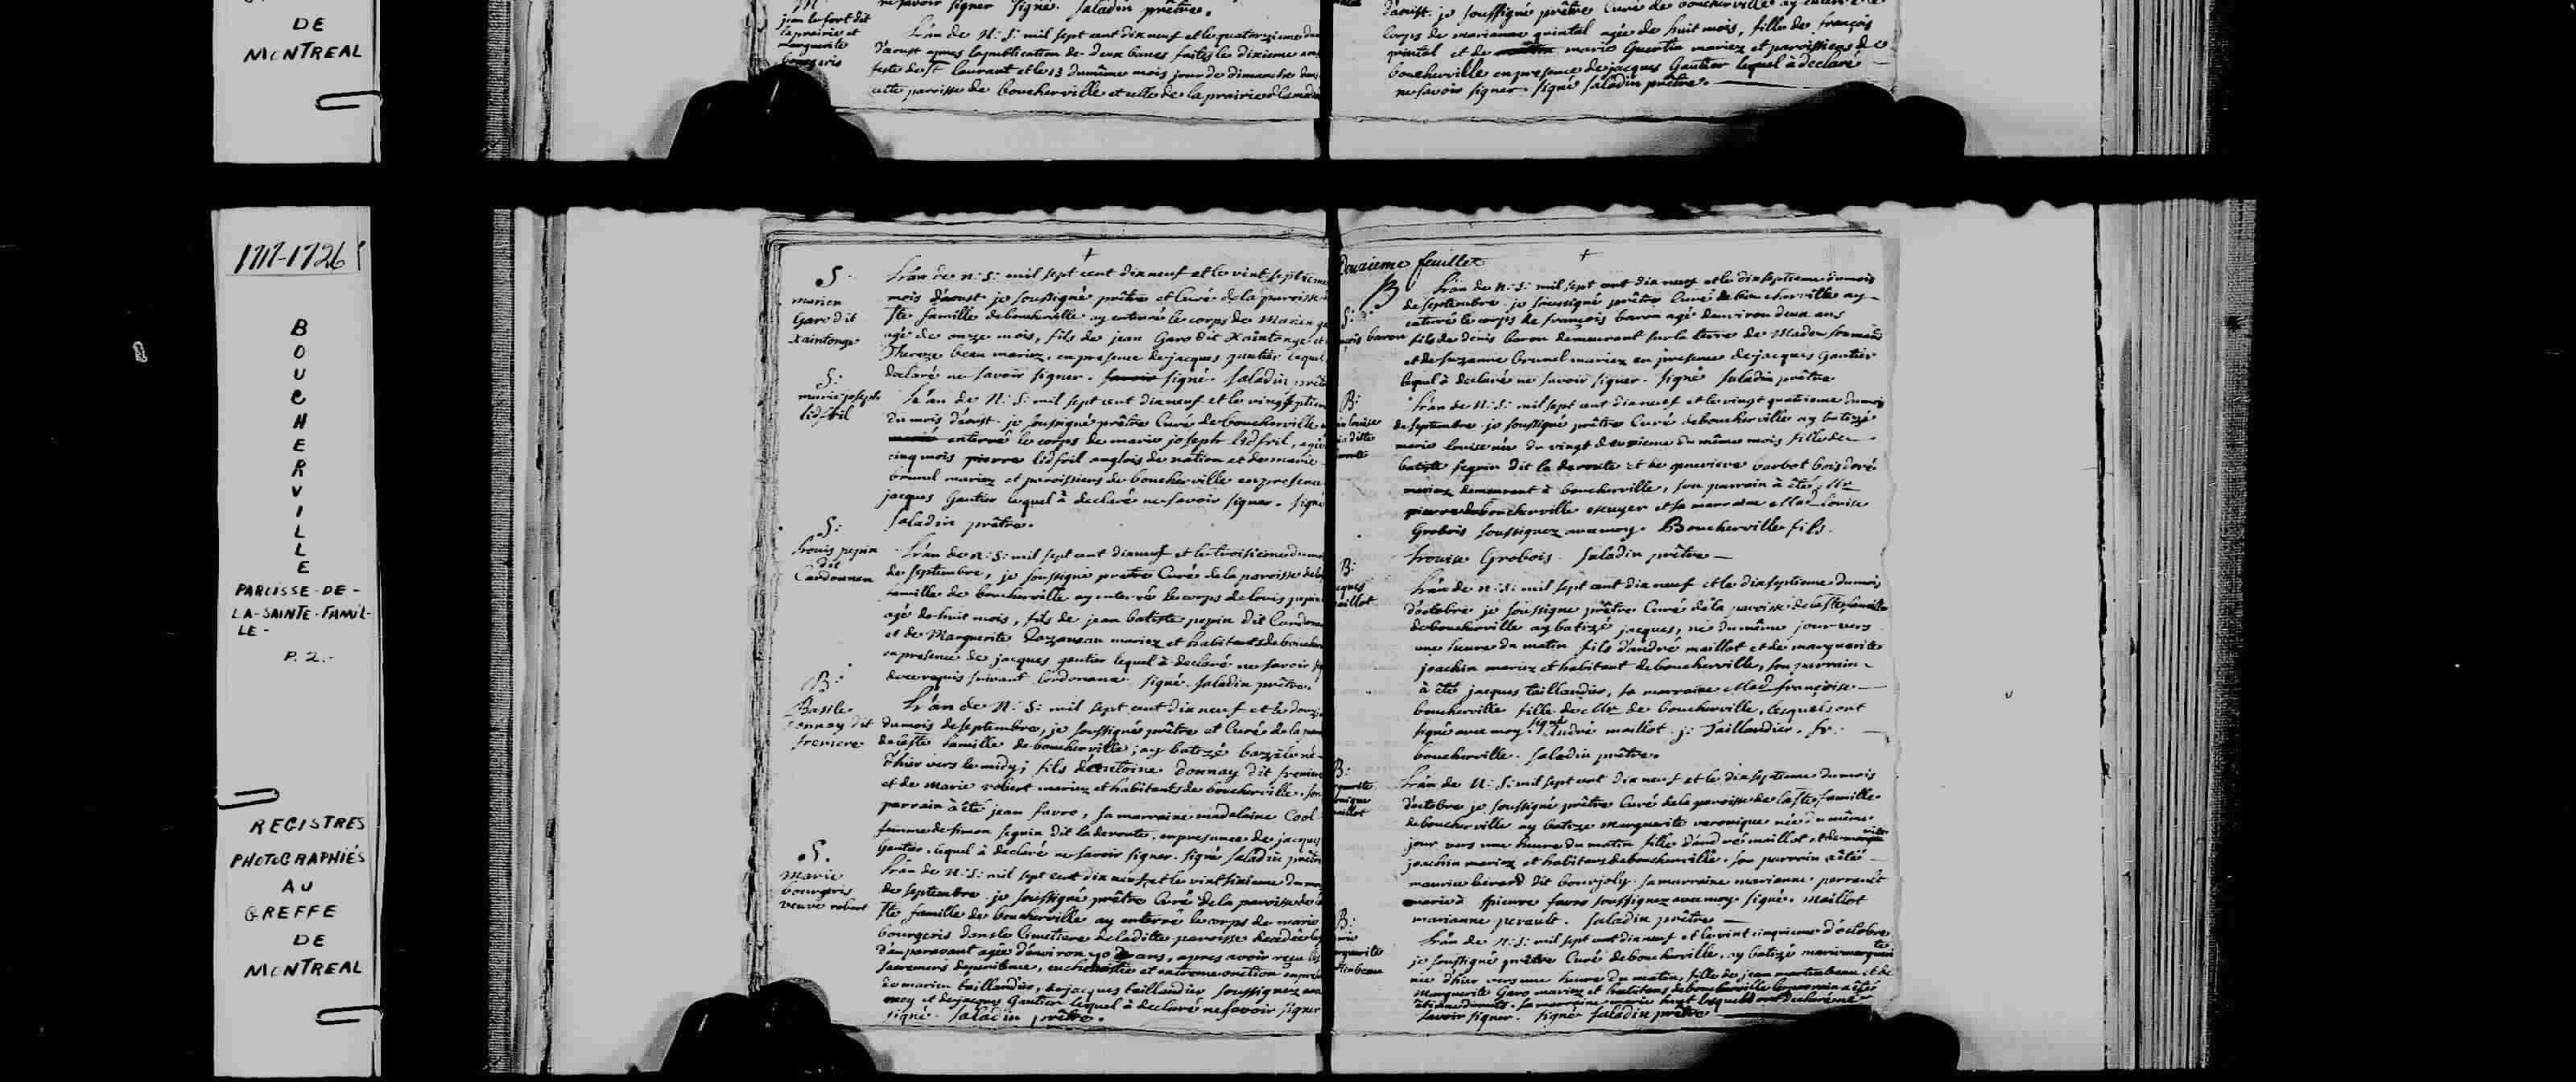 DE
MONTREAL
ne savoir signer signé. Saladin prêtre.
jean lefort dit
laprairie et
marguerite
bourgeris
L'an de N: S: mil sept cent dixneuf et le quatorzieme du
d'aoust apres la publication de deux bancs faites le dixieme
feste de St laurant et le 13 du même mois jour de dimanche dans
cette paroisse de boucherville et celle de la prairie
d'aoust. je soussigné prêtre Curé de boucherville ay enterré le
corps de marianne quintal agée de huit mois, fille de françois
quintal et de marie Guertin mariez et paroissiens de
boucherville en presence de jacques Gautier lequel à declaré
ne savoir signer. signé Saladin prêtre.
1717-1726
BOUCHERVILLE
PAROISSE-DE-
LA-SAINTE-FAMIL-
LE-
P. 2.-
REGISTRES
PHOTOGRAPHIÉS
AU
GREFFE
DE
MONTREAL
S.
marien
Garo dit
Xaintonge
L'an de n: S: mil sept cent dixneuf et le vint septieme
mois d'aoust je soussigné prêtre et Curé de la paroisse
Ste famille de boucherville ay enterré le corps de Marien
agé de onze mois, fils de jean Garo dit Xaintonge et
Thereze beau mariez, en presence de jacques gautier lequel
declaré ne savoir signer. savoir signé. Saladin prêtre
S:
marie joseph
lidfril
L'an de N: S: mil sept cent dixneuf et le vingtseptieme
du mois d'aoust je soussigné prêtre Curé de boucherville
enterré le corps de marie joseph lidfril, agée
cinq mois pierre lidfoil anglois de nation et de marie
brunel mariez et paroissiens de boucherville en presence
jacques Gautier lequel à declaré ne savoir signer. signé
Saladin prêtre.
S:
Louis pepin
dit
Cardonnen
L'an de n: S: mil sept cent dixneuf et le troisieme du mois
de septembre, je soussigné prêtre Curé de la paroisse de la
famille de boucherville ay enterré le corps de louis pepin
agé de huit mois, fils de jean batiste pepin dit
et de Marguerite Lazaneau mariez et habitants de boucher
en presence de jacques gautier lequel à declaré ne savoir
de ce requis suivant lordonance signé. Saladin prêtre.
B:
Basile
Donnay dit
freniere
L'an de N: S: mil sept cent dixneuf et le
du mois de septembre, je soussigné prêtre et Curé de la
de la Ste famille de boucherville, ay batizé bazile né
d'hier vers le midy; fils d'antoine donnay dit freniere
et de marie robert mariez et habitants de boucherville. son
parrain à été jean favro, sa marraine madelaine Cool
femme de simon seguin dit laderoute, en presence de jacques
Gautier, lequel à declaré ne savoir signer. signé Saladin prêtre
S.
Marie
bourgeris
veuve robert
L'an de N: S: mil sept cent dixneuf et le vint sixieme du
de septembre je soussigné prêtre Curé de la paroisse de
Ste famille de boucherville ay enterré le corps de marie
bourgeris dans le Cimetiere de laditte paroisse decedée
d'auparavant agée d'environ 70 ans, apres avoir reçu
sacremens de penitence, eucharistie et extreme onction
de marien taillandier, de jacques taillandier soussignez avec
moy et de jacques Gautier lequel à declaré ne savoir signer
signé. Saladin prêtre.
Deuzieme feuillet
S:
baron
L'an de n: S: mil sept cent dixneuf et le dixseptieme du mois
de septembre. je soussigné prêtre Curé de boucherville ay
enterré le corps de francois baron agé d'environ deux ans
fils de denis baron demeurant sur la terre de
et de suzanne brunel mariez en presence de jacques Gautier
lequel à declaré ne savoir signer. signé Saladin prêtre
B:
L'an de N: S: mil sept cent dixneuf et le vingt quatrieme du mois
de septembre. je soussigné prêtre Curé de boucherville ay batizé
marie louise née du vingt deuxieme du même mois fille de
batiste seguin dit la deroute et de genevieve barbot bois doré
mariez demeurant à boucherville, son parrain à été Mr
pierre de boucherville escuyer et sa marraine Mad louise
Grobois soussignez avec moy. Boucherville fils.
Louise Grobois. Saladin prêtre
B:
jacques
maillot
L'an de n: S: mil sept cent dixneuf et le dixseptieme du mois
d'octobre je soussigné prêtre Curé de la paroisse de la Ste famille
de boucherville ay batizé jacques, né du même jour vers
une heure du matin fils d'andré maillot et de marguerite
joachin mariez et habitant de boucherville, son parrain
à été jacques taillandier, sa marraine Mad françoise
boucherville fille de Mr de boucherville, lesquels ont
signé avec moy. signé André maillot. j. Taillandier. fr.
boucherville. Saladin prêtre.
B:
L'an de N: S: mil sept cent dixneuf et le dixseptieme du mois
d'octobre je soussigné prêtre Curé de la paroisse de la Ste famille
de boucherville ay batizé marguerite veronique née du même
jour vers une heure du matin fille d'andré maillot et de marguerite
joachin mariez et habitans de boucherville. son parrain a été
maurice berard dit bourjoly. sa marraine marianne perrault
mariée à pierre favro soussignez avec moy signé. Maillot
marianne perault. Saladin prêtre
B:
L'an de N: S: mil sept cent dixneuf et le vint cinquieme d'octobre
je soussigné prêtre Curé de boucherville, ay batizé marie marguerite
née d'hier vers une heure du matin, fille de jean martinbeau et de
Marguerite Garo mariez et habitans de boucherville le parrain a été
sa marraine marie huet lesquels ont declaré ne
savoir signer. signé Saladin prêtre